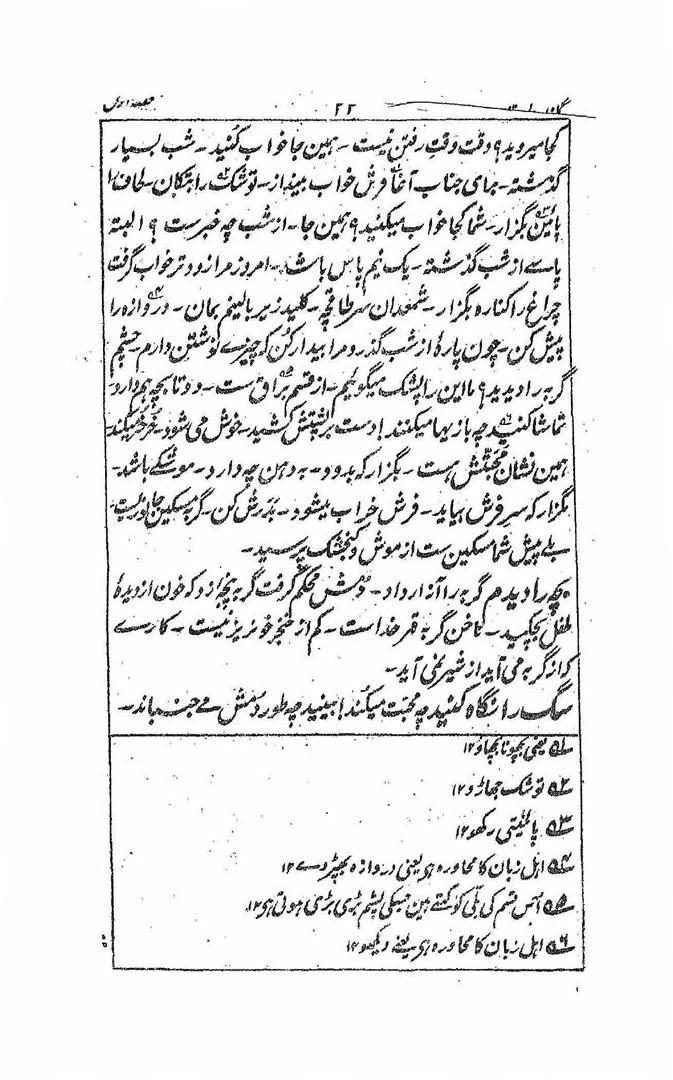 ۲۲
کجا میروید؟ وقت وقتِ رفتن نیست - همین جا خواب کُنید - شب بسیار
گذشته - برای جناب آغا فرش خواب بینداز - توشک را بتکان - لحاف را
پائین بگزار - شما کجا خواب میکنید؟ همین جا - از شب چه خبرست؟ البته
پاسے از شب گذشته - یک نیم پاس باشد - امروز مرا زود تر خواب گرفت
چراغ را کناره بگزار - شمعدان سر طاقچه - کلید زیر بالینم بمان - دروازه را
پیش کن - چون پارۂ از شب گذرد مرا بیدار کُن که چیزے نوشتن دارم - چشم
گربه را دیدید؟ ما این را پشک میگوئیم - از قسم بُراق ست - دو تا بچه هم دارد
تماشا کنید چه بازیها میکنند! دست بر پشتش کشید - خوش می شود - خُرخُر میکند
همین نشان محبّتش هست - بگزار که بدود - به دهن چه دارد - موشکے باشد -
بگزار که سرِ فرش بیاید - فرش خراب میشود - بدرش کن - گربه مسکین جانوریست
بلے پیش شما مسکین ست از موش و گنجشک پرسید -
بچه را دیدم گربه را آزار داد - دُمش محکم گرفت گربه پنجۂ زد که خون از دیدۂ
طفل بچکید - ناخن گربه قهر خداست - کم از خنجر خونریز نیست - کارے
که از گربه می آید از شیر نمی آید -
سگ را نگاه کنید چه محبّت میکند! ببینید چه طور دُمش مے جنباند -
۱ یعنی بچھونا بچھاؤ ۱۲
۲ توشک جھاڑو ۱۲
۳ پائینتی رکھو ۱۲
۴ اہل زبان کا محاورہ ہی یعنی دروازہ بھیڑ دے ۱۲
۵ اُس قسم کی بلّی کو کہتے ہین جسکی پشم بڑی بڑی ہوتی ہی ۱۲
۶ اہل زبان کا محاورہ ہی یعنے دیکھو ۱۲